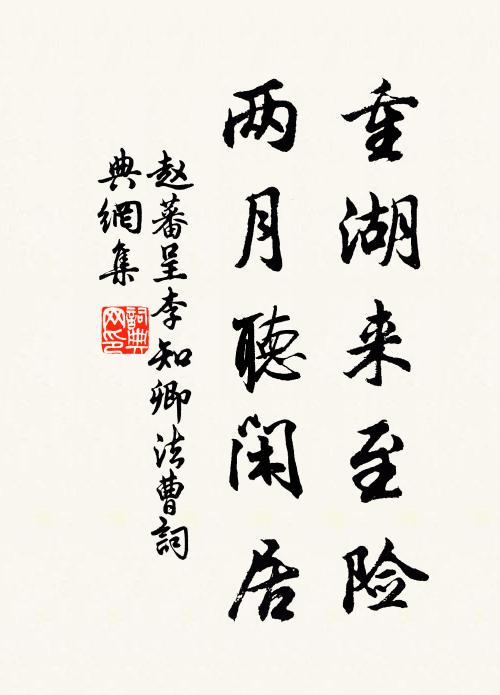 重湖来至险
两月聽閑居
赵蕃呈李知卿法曹詞
典網集
詞典网印